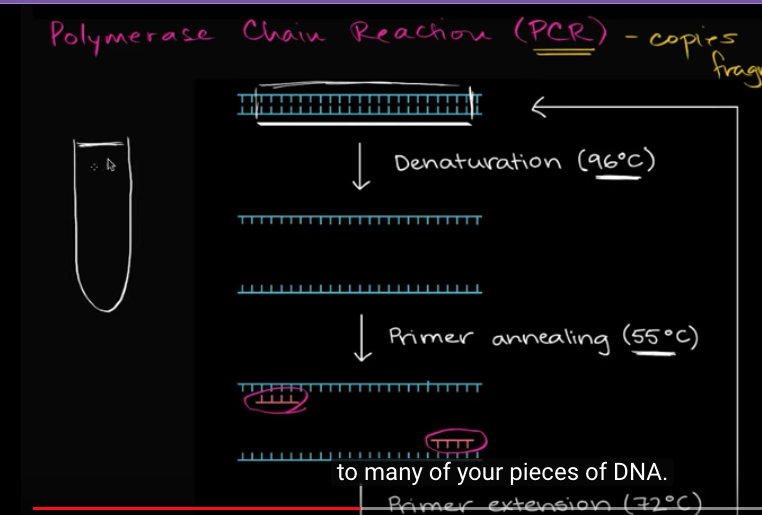 Polymerase Chain Reaction (PCR) - copies
Denaturation (96°C)
Primer annealing (55°C)
to many of your pieces of DNA.
Primer extension (72°C)